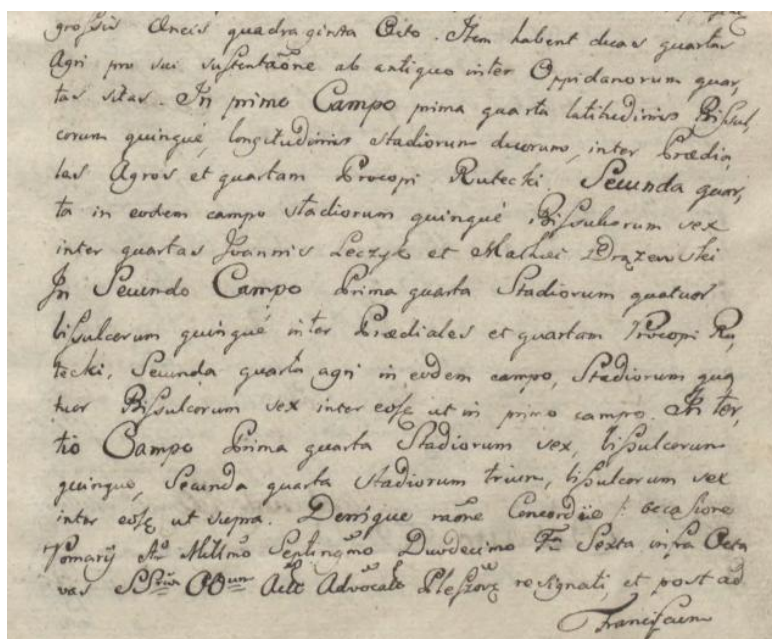 grossis Aneis quadraginta Octo. Item habent duas quartas
Agri pro sui sustentaõne ab antiquo inter Oppidanorum quar,
tas sitas. In primo Campo prima quarta latitudinis Bissul,
corum quinque, longitudinis stadiorum duorum, inter Prædia,
les Agros et quartam Procopi Rutecki. Secunda quar,
ta in eodem campo stadiorum quinque Bissulcorum sex
inter quartas Joannis Leczyk et Mathæi Drązewski
In Secundo Campo Prima quarta Stadiorum quatuor
bissulcorum quinque inter Prædiales et quartam Procopi Ru,
tecki. Secunda quarta agri in eodem campo, Stadiorum qua
tuor Bissulcorum sex inter eosq ut in primo campo. In ter,
tio Campo Prima quarta Stadiorum sex, bissulcorum
quinque, Secunda quarta stadiorum trium, bissulcorum sex
inter eosq ut supra. Denique raõne Concordiæ /: occasione
Pomarij Aõ Millmo Septingmo Duodecimo Fa Sexta infra Octa
vas SSrum OOum Advocato resignati, et post ad
Franciscum